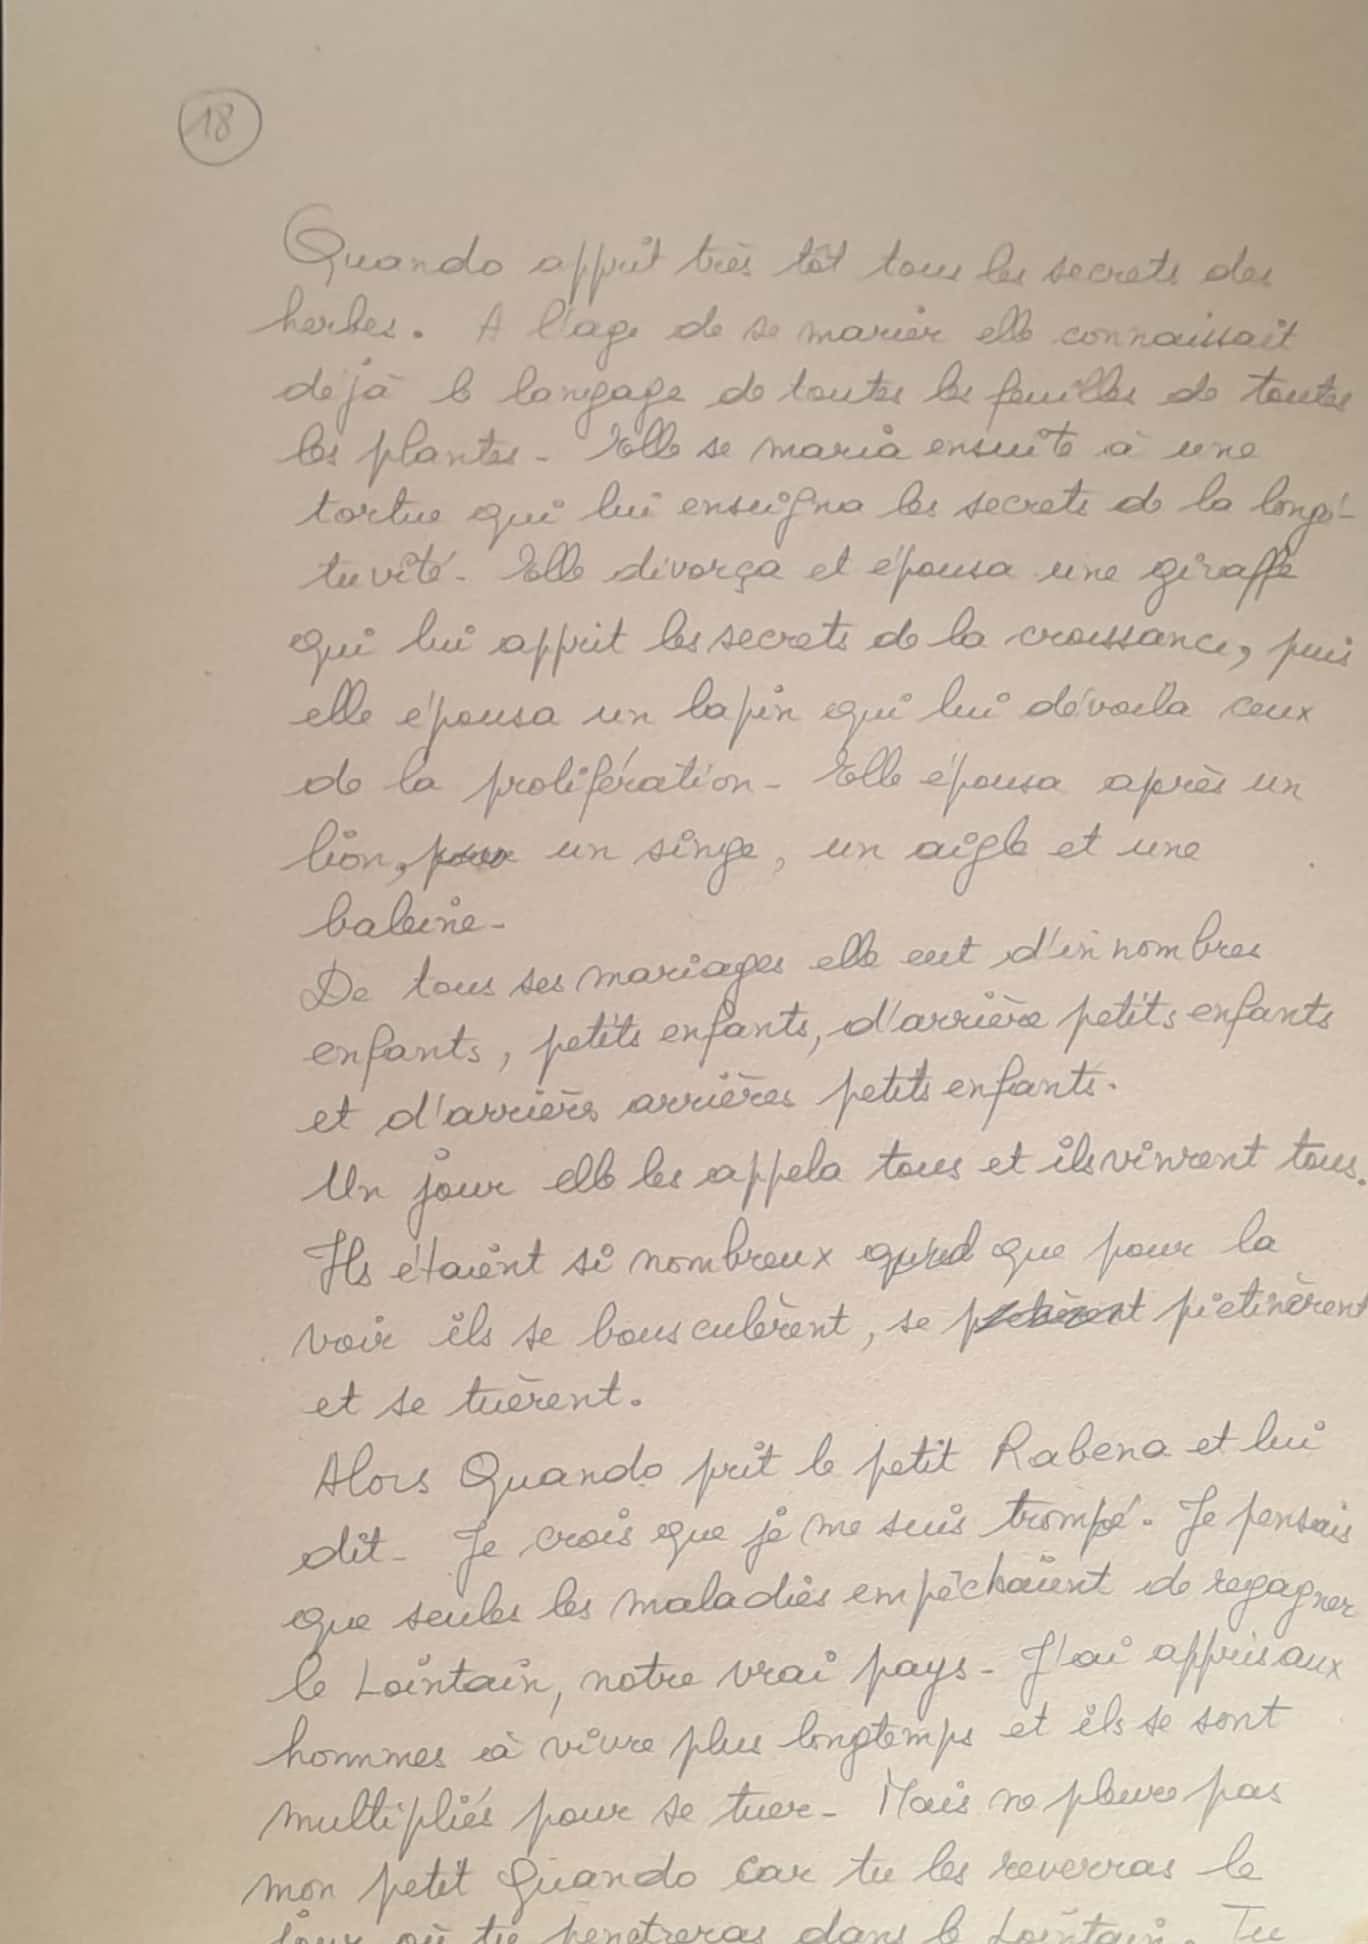 18
Quando apprit très tôt tous les secrets des
herbes. A l'age de se marier elle connaissait
déjà le langage de toutes les feuilles de toutes
les plantes - Elle se maria ensuite à une
tortue qui lui enseigna les secrets de la longé-
tuvité - Elle divorça et épousa une giraffe
qui lui apprit les secrets de la croissance, puis
elle épousa un lapin qui lui dévoila ceux
de la prolifération - Elle épousa après un
lion, pour un singe, un aigle et une
baleine -
De tous ses mariages elle eut d'innombres
enfants, petits enfants, d'arrière petits enfants
et d'arrières arrières petits enfants.
Un jour elle les appela tous et ils vinrent tous.
Ils étaient si nombreux que pour la
voir ils se bousculèrent, se piétinèrent
et se tuèrent.
Alors Quando prit le petit Rabena et lui
dit - Je crois que je me suis trompé. Je pensais
que seules les maladies empêchaient de regagner
le Lointain, notre vrai pays - J'ai appris aux
hommes à vivre plus longtemps et ils se sont
multipliés pour se tuer - Mais ne pleure pas
mon petit Quando car tu les reverras le
jour où tu pénetreras dans le Lointain. Tu